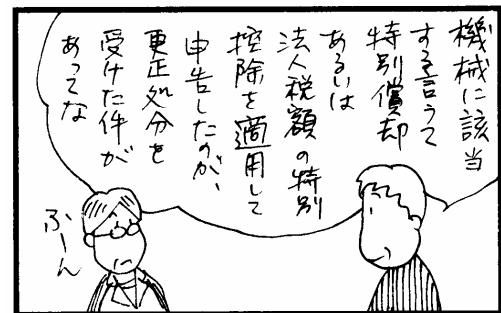 機械に該当
する言うて
特別償却
あるいは
法人税額の特別
控除を適用して
申告したのが、
更正処分を
受けた件が
あってな
ふーん